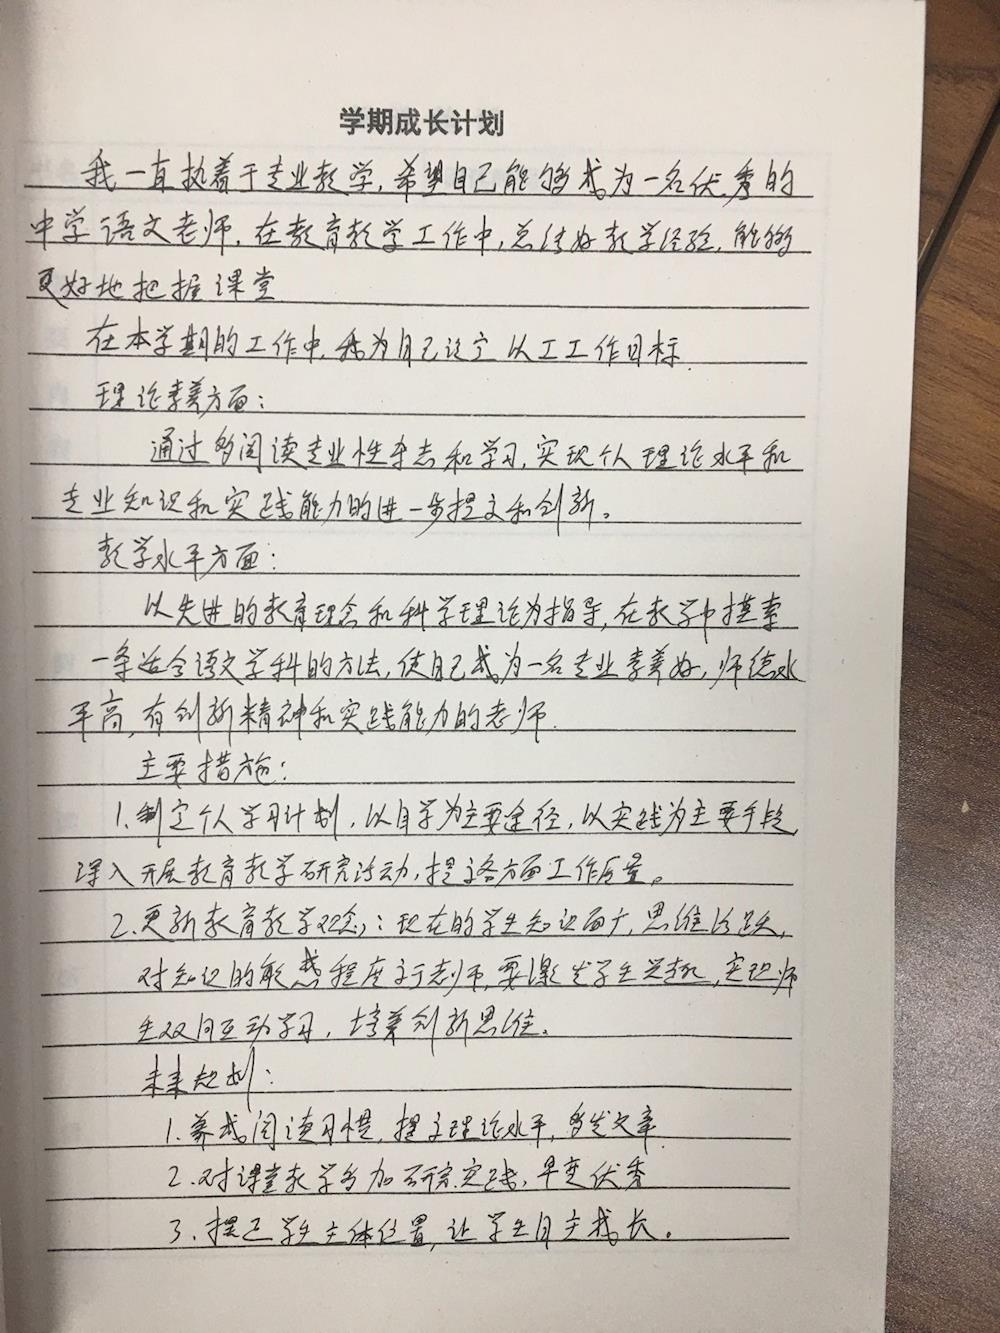 学期成长计划
我一直执着于专业教学,希望自己能够成为一名优秀的
中学语文老师,在教育教学工作中,总结好教学经验,能够
更好地把握课堂
在本学期的工作中,我为自己设定以工工作目标
理论素养方面:
通过多阅读专业性杂志和学习,实现个人理论水平和
专业知识和实践能力的进一步提高和创新。
教学水平方面:
以先进的教育理念和科学理论为指导,在教学中摸索
一条适合语文学科的方法,使自己成为一名专业素养好,师德水
平高,有创新精神和实践能力的老师.
主要措施:
1.制定个人学习计划,以自学为主要途径,以实践为主要手段
深入开展教育教学研究活动,提高各方面工作质量。
2.更新教育教学观念:现在的学生知识面广,思维活跃,
对知识的敏感程度高于老师,要激发学生学机,实现师
生双向互动学习,培养创新思维。
未来规划:
1.养成阅读习惯,提高理论水平,多发文章
2.对课堂教学多加研究实践,早变优秀
3.摆正学生主体位置,让学生自主成长。